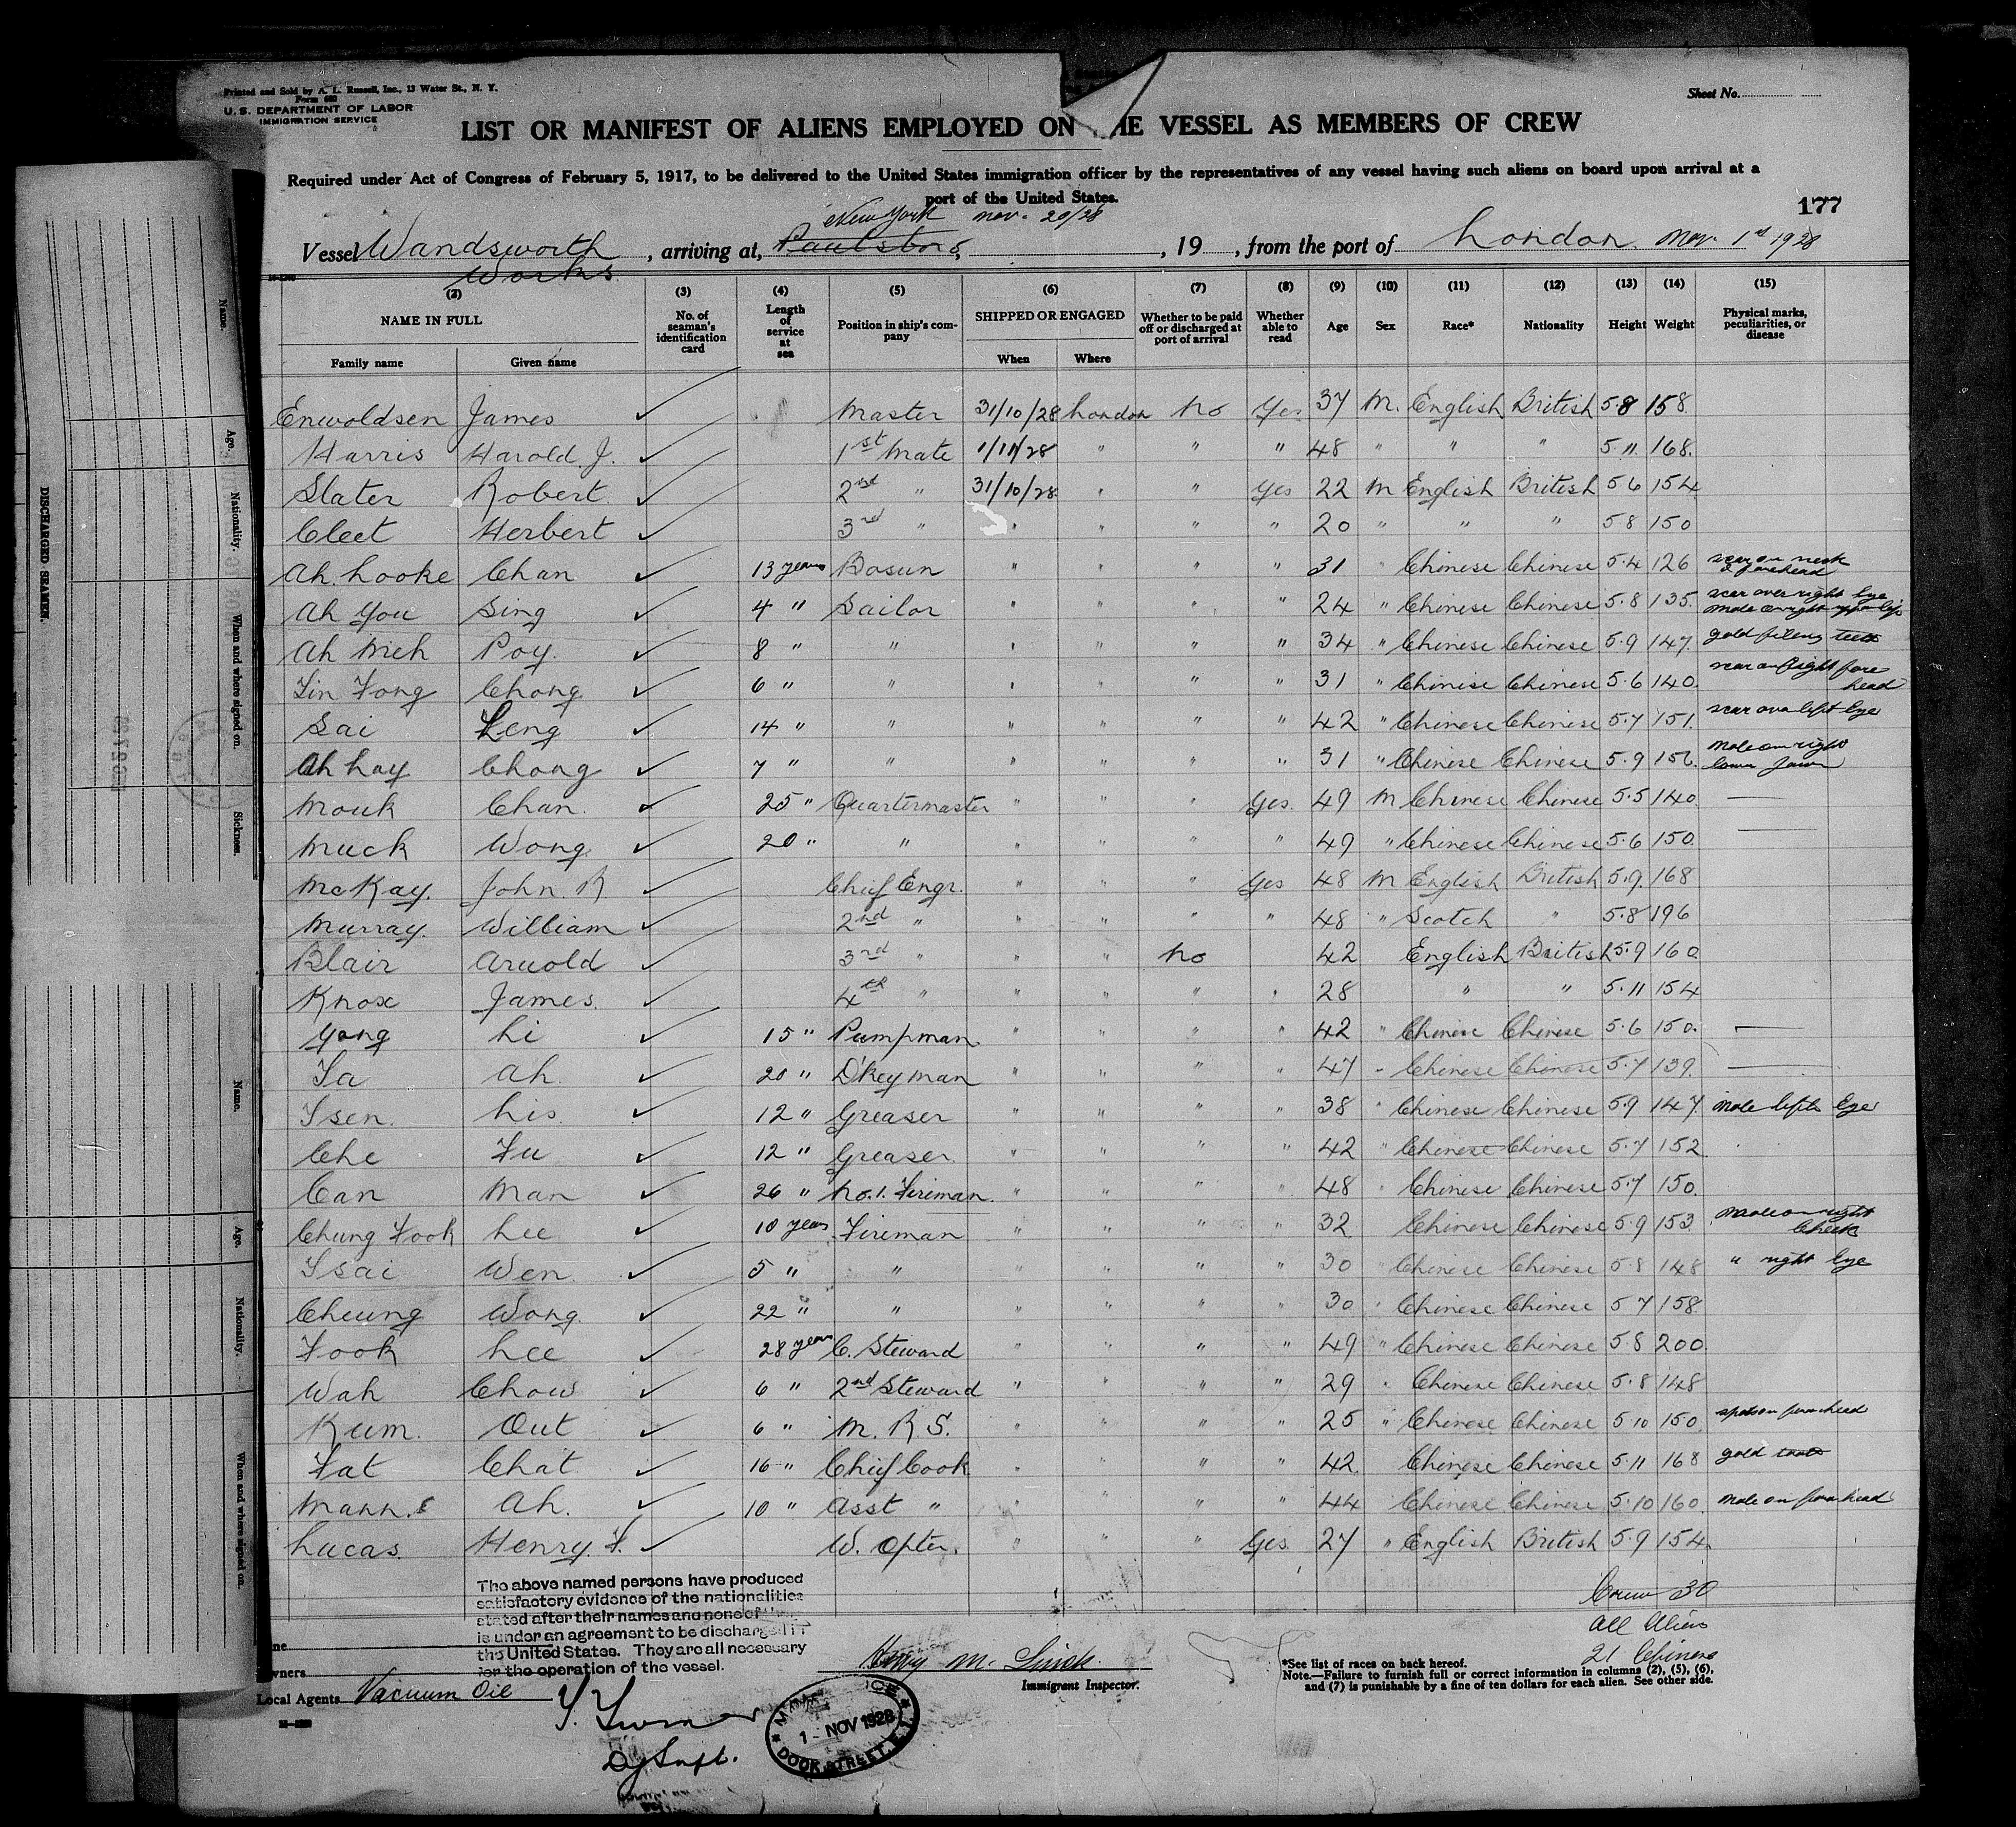 Printed and Sold by A. L. Russell, Inc., 13 Water St., N. Y.
Form 680
U. S. DEPARTMENT OF LABOR
IMMIGRATION SERVICE
Sheet No.
LIST OR MANIFEST OF ALIENS EMPLOYED ON THE VESSEL AS MEMBERS OF CREW
Required under Act of Congress of February 5, 1917, to be delivered to the United States immigration officer by the representatives of any vessel having such aliens on board upon arrival at a
port of the United States.
177
New York Nov. 20/28
Vessel Wandsworth Works, arriving at, Paulsboro, 19, from the port of London Nov. 1st 1928
(2) (3) (4) (5) (6) (7) (8) (9) (10) (11) (12) (13) (14) (15)
NAME IN FULL No. of seaman's identification card Length of service at sea Position in ship's company SHIPPED OR ENGAGED Whether to be paid off or discharged at port of arrival Whether able to read Age Sex Race* Nationality Height Weight Physical marks, peculiarities, or disease
Family name Given name When Where
Enwoldsen James ✓ Master 31/10/28 London No Yes 37 M. English British 5 8 158
Harris Harold J. ✓ 1st Mate 1/11/28 " " " 48 " " " 5 11 168.
Slater Robert ✓ 2nd " 31/10/28 " " Yes 22 M English British 5 6 154
Cleet Herbert ✓ 3rd " " " " " 20 " " " 5 8 150
Ah Looke Chan ✓ 13 years Bosun " " " " 31 " Chinese Chinese 5.4 126 scar on neck & forehead
Ah You Sing ✓ 4 " Sailor " " " " 24 " Chinese Chinese 5.8 135. scar over right Eye mole on right upper lip
Ah Mch Poy. ✓ 8 " " " " " " 34 " Chinese Chinese 5.9 147. gold filling teeth
Tin Fong Chong ✓ 6 " " " " " " 31 " Chinese Chinese 5.6 140. scar on Right fore head
Sai Leng ✓ 14 " " " " " " 42 " Chinese Chinese 5.7 151. scar over left Eye
Ah Lay Chong ✓ 7 " " " " " " 31 " Chinese Chinese 5.9 156. Mole on right lower Jaw
Mouk Chan ✓ 25 " Quartermaster " " " Yes 49 M Chinese Chinese 5.5 140.
Muck Wong ✓ 20 " " " " " " 49 " Chinese Chinese 5.6 150.
McKay. John. R ✓ Chief Engr. " " " Yes 48 M English British 5.9. 168
Murray. William ✓ 2nd " " " " " 48 " Scotch " 5.8 196
Blair Arnold ✓ 3rd " " " No 42 English British 5.9 160
Knox James. ✓ 4th " " " " " 28 " " 5.11 154
Yong Li ✓ 15 " Pumpman. " " " " 42 " Chinese Chinese 5.6 150.
Ta Ah. ✓ 20 " D'key man " " " " 47 " Chinese Chinese 5.7 139.
Tsen. Lis ✓ 12 " Greaser " " " " 38 " Chinese Chinese 5.9 147 mole left Eye
Che Fu ✓ 12 " Greaser. " " " 42 " Chinese Chinese 5.7 152
Can Man ✓ 26 " No. 1. Fireman. " " " " 48 " Chinese Chinese 5.7 150.
Chung Fook Lee ✓ 10 years Fireman " " " " 32 Chinese Chinese 5.9 153 Mole on right Cheek
Tsai Wen ✓ 5 " " " " " " 30 " Chinese Chinese 5.8 148 " right Eye
Cheung Wong. ✓ 22 " " " " " " 30 " Chinese Chinese 5 7 158.
Fook Lee ✓ 28 years C. Steward " " " " 49 " Chinese Chinese 5.8 200.
Wah Chow ✓ 6 " 2nd Steward " " " " 29 " Chinese Chinese 5.8 148
Kum. Out ✓ 6 " M. R S. " " " 25 " Chinese Chinese 5 10 150. spot on forehead
Fat Chat ✓ 16 " Chief Cook " " " " 42. Chinese Chinese 5.11 168 gold tooth
Mann. Ah. ✓ 10 " Asst " " " " " 44 Chinese Chinese 5.10 160. mole on forehead
Lucas. Henry. F. ✓ W. Opter. " " " Yes. 27 " English British 5.9 154.
Crew 30
All Aliens
21 Chinese
The above named persons have produced
satisfactory evidence of the nationalities
stated after their names and none of
is under an agreement to be discharged i
the United States. They are all necessary
for the operation of the vessel.
Immigrant Inspector.
*See list of races on back hereof.
Note.—Failure to furnish full or correct information in columns (2), (5), (6),
and (7) is punishable by a fine of ten dollars for each alien. See other side.
Owners
Local Agents Vacuum Oil
1 - NOV 1928
DOCK STREET, E.1.
DISCHARGED SEAMEN.
Name.
Age.
Nationality.
When and where signed on.
Sickness.
Name.
Age.
Nationality.
When and where signed on.